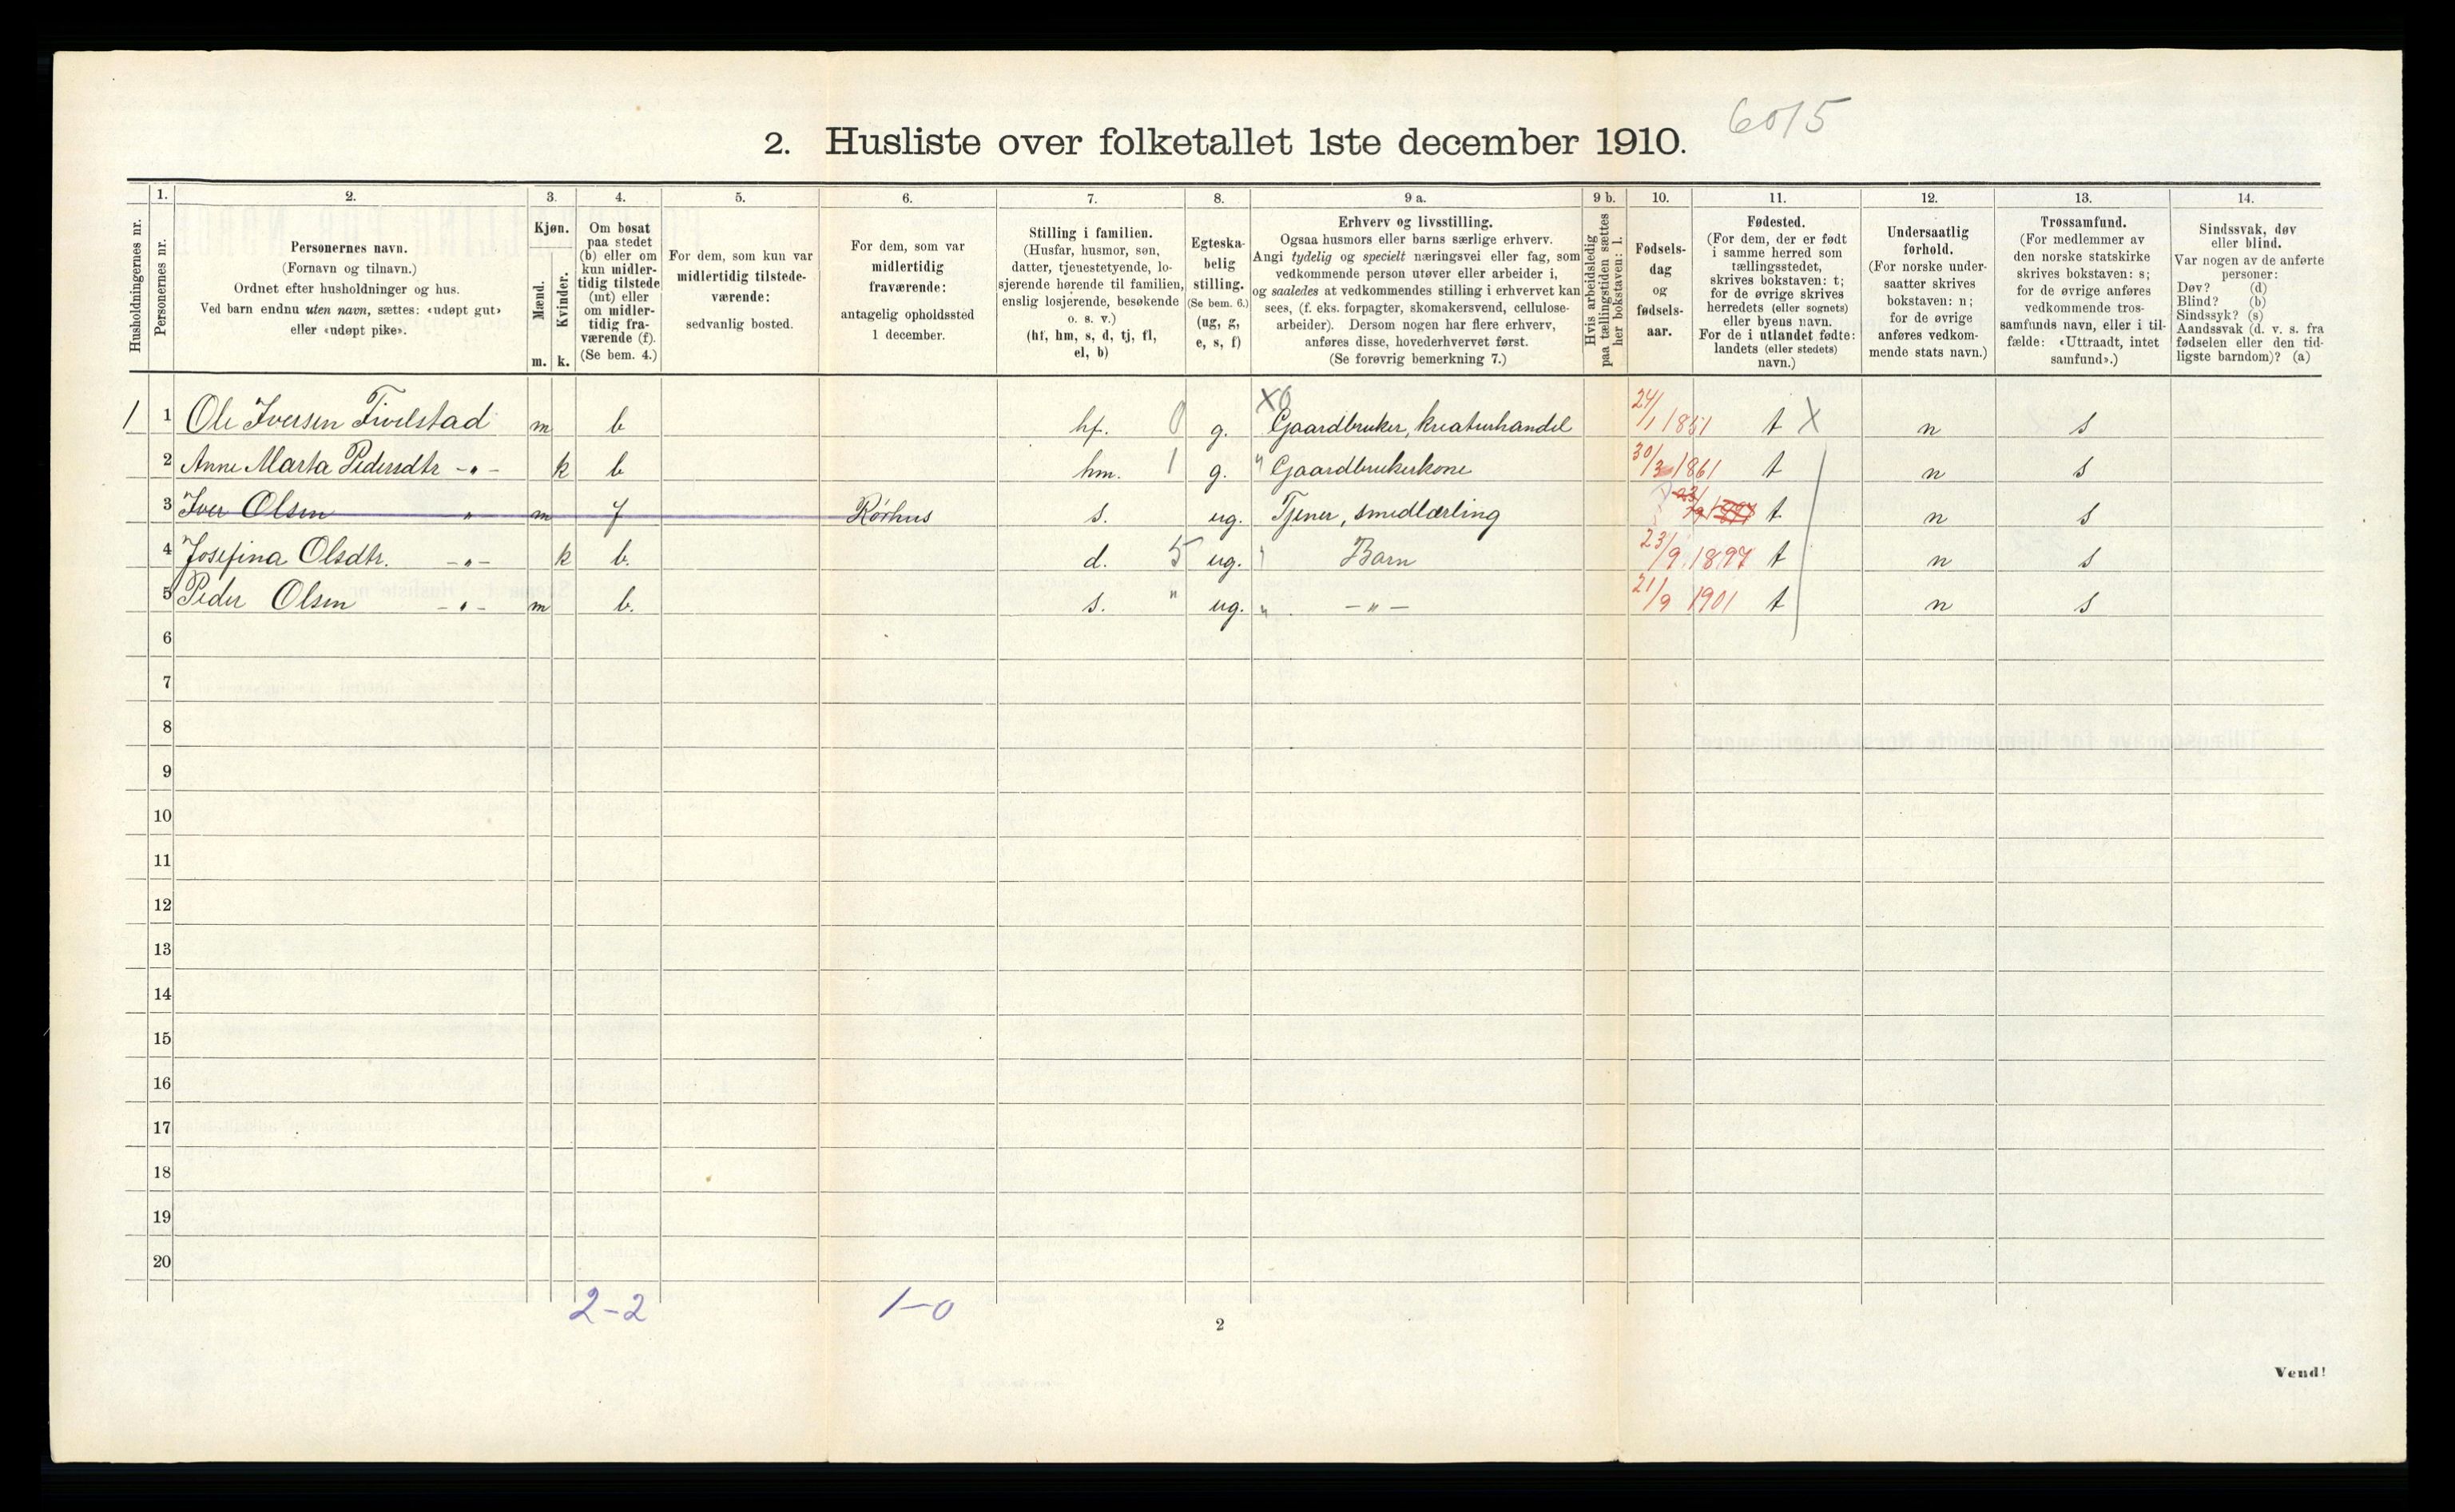 6015
2. Husliste over folketallet 1ste december 1910.
Husholdningernes nr.
1.
Personernes nr.
2.
Personernes navn.
(Fornavn og tilnavn.)
Ordnet efter husholdninger og hus.
Ved barn endnu uten navn, sættes: «udøpt gut»
eller «udøpt pike».
3.
Kjøn.
Mænd.
Kvinder.
m. k.
4.
Om bosat
paa stedet
(b) eller om
kun midler-
tidig tilstede
(mt) eller
om midler-
tidig fra-
værende (f).
(Se bem. 4.)
5.
For dem, som kun var
midlertidig tilstede-
værende:
sedvanlig bosted.
6.
For dem, som var
midlertidig
fraværende:
antagelig opholdssted
1 december.
7.
Stilling i familien.
(Husfar, husmor, søn,
datter, tjenestetyende, lo-
sjerende hørende til familien,
enslig losjerende, besøkende
o. s. v.)
(hf, hm, s, d, tj, fl,
el, b)
8.
Egteska-
belig
stilling.
(Se bem. 6.)
(ug, g,
e, s, f)
9 a.
Erhverv og livsstilling.
Ogsaa husmors eller barns særlige erhverv.
Angi tydelig og specielt næringsvei eller fag, som
vedkommende person utøver eller arbeider i,
og saaledes at vedkommendes stilling i erhvervet kan
sees, (f. eks. forpagter, skomakersvend, cellulose-
arbeider). Dersom nogen har flere erhverv,
anføres disse, hovederhvervet først.
(Se forøvrig bemerkning 7.)
9 b.
Hvis arbeidsledig
paa tællingstiden sættes
her bokstaven: l.
10.
Fødsels-
dag
og
fødsels-
aar.
11.
Fødested.
(For dem, der er født
i samme herred som
tællingsstedet,
skrives bokstaven: t;
for de øvrige skrives
herredets (eller sognets)
eller byens navn.
For de i utlandet fødte:
landets (eller stedets)
navn.)
12.
Undersaatlig
forhold.
(For norske under-
saatter skrives
bokstaven: n;
for de øvrige
anføres vedkom-
mende stats navn.)
13.
Trossamfund.
(For medlemmer av
den norske statskirke
skrives bokstaven: s;
for de øvrige anføres
vedkommende tros-
samfunds navn, eller i til-
fælde: «Uttraadt, intet
samfund».)
14.
Sindssvak, døv
eller blind.
Var nogen av de anførte
personer:
Døv? (d)
Blind? (b)
Sindssyk? (s)
Aandssvak (d. v. s. fra
fødselen eller den tid-
ligste barndom)? (a)
1 1 Ole Iversen Tivilstad m b hf. 0 g. X0 Gaardbruker, kreaturhandel 24/1 1851 t X n s
2 Anne Marta Pedersdtr -"- k b hm. 1 g. " Gaardbrukerkone 30/3 1861 t n s
3 Iver Olsen " m f Rørhus s. ug. Tjener, smedlærling t n s
4 Josefina Olsdtr. -"- k b. d. 5 ug. " Barn 23/9 1897 t n s
5 Peder Olsen -"- m b. s. " ug. " -"- 21/9 1901 t n s
6
7
8
9
10
11
12
13
14
15
16
17
18
19
20
2-2 1-0
2
Vend!